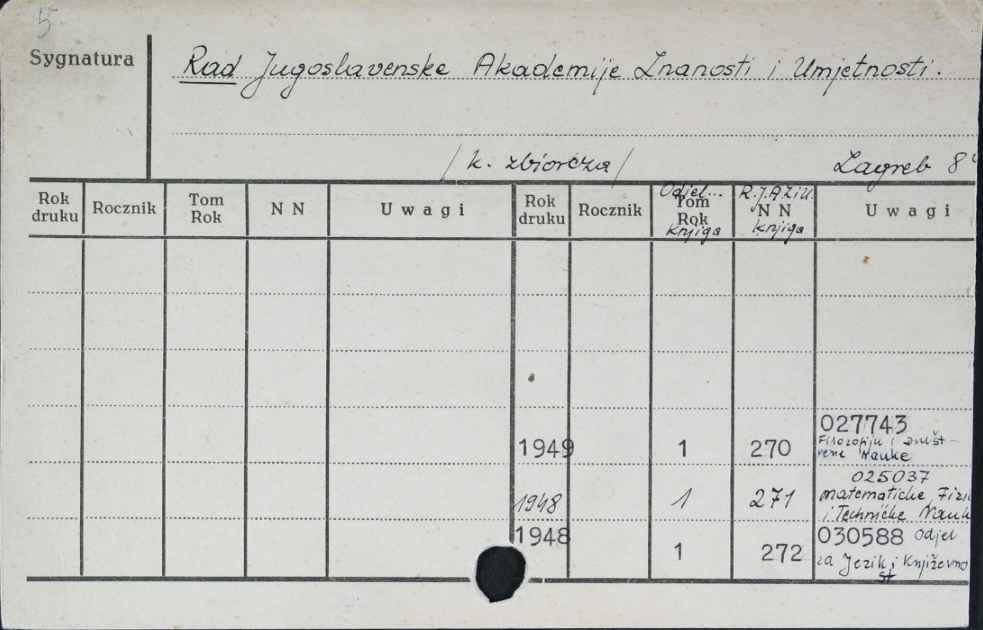 5
Sygnatura
Rad Jugoslavenske Akademije Znanosti i Umjetnosti.
/k. zbiorcza/ Zagreb 8°
Rok druku Rocznik Tom Rok N N Uwagi Rok druku Rocznik Odjel... Tom Rok knjiga R.J.A.Z.i U. N N knjiga Uwagi
1949 1 270 027743
Filozofiju i društ-
vene Nauke
1948 1 271 025037
matematicke, Fizi
i Technićke Nauk
1948 1 272 030588 Odjel
za Jezik i Književno
st